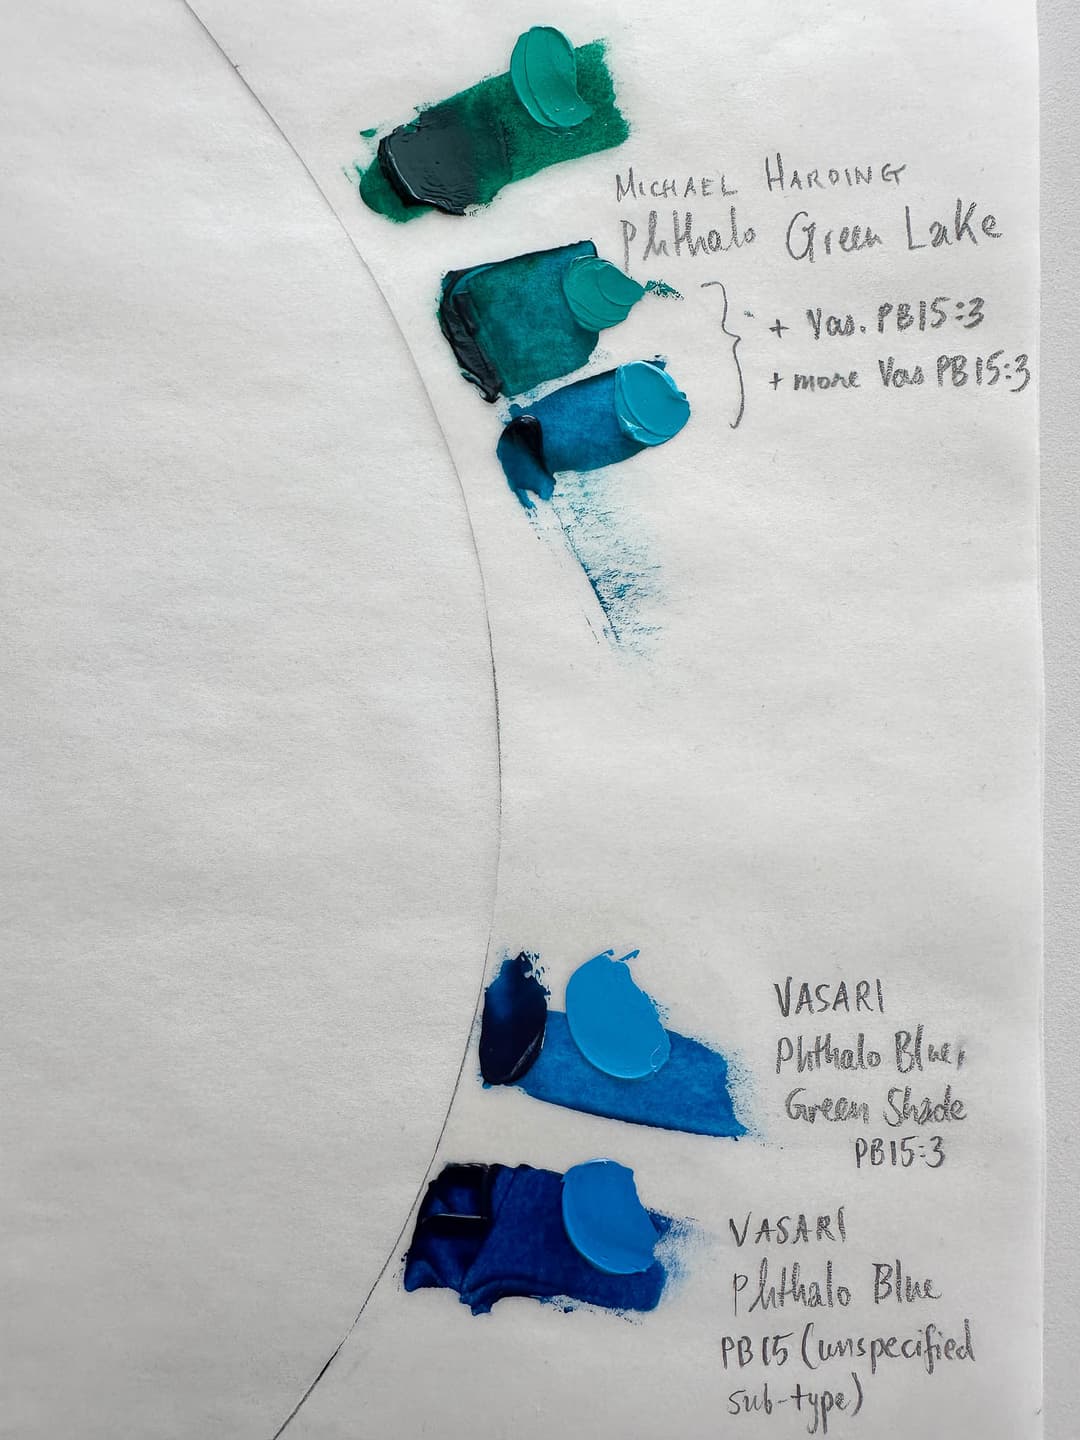 MICHAEL HARDING
Phthalo Green Lake
+ Vas. PB15:3
+ more Vas PB15:3
VASARI
Phthalo Blue,
Green Shade
PB15:3
VASARI
Phthalo Blue
PB15 (unspecified
sub-type)